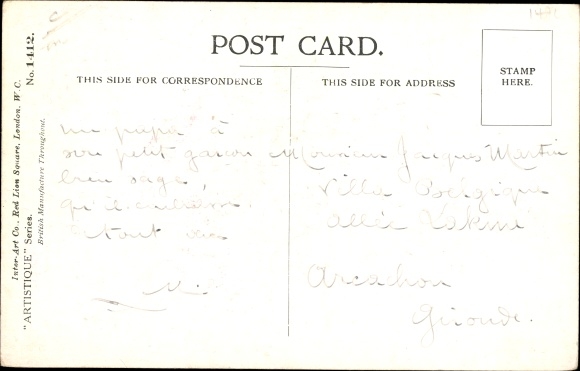 1421
POST CARD.
THIS SIDE FOR CORRESPONDENCE
THIS SIDE FOR ADDRESS
STAMP
HERE.
Inter-Art Co., Red Lion Square, London, W.C.
"ARTISTIQUE" Series.
No. 1412.
British Manufacture Throughout.
un papa à
son petit garçon
bien sage,
qu'il embrasse
tout
M.
Monsieur Jacques Martin
Villa Belgique
Allée Lakmé
Arcachon
Gironde.